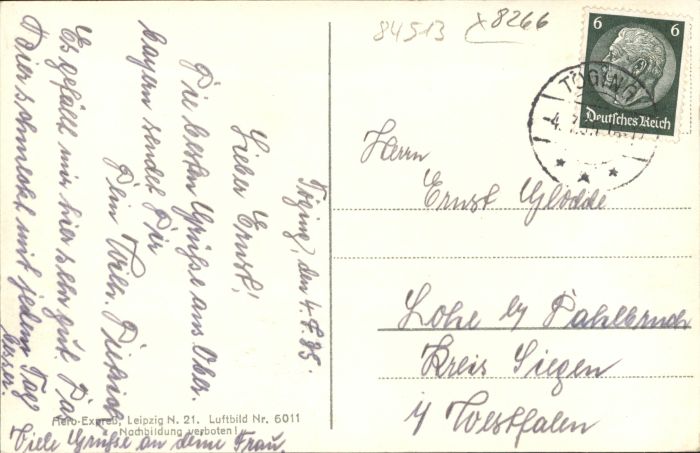 84513 x8266
6 6
Deutsches Reich
TÖGING
Töging, den 4.7.35.
Lieber Ernst!
Die besten Grüße aus Ober-
bayern sendet Dir
Dein
Es gefällt mir hier sehr gut. Das
Bier schmeckt mit jedem Tag
besser.
Viele Grüße an deine Frau.
Herrn
Ernst Glodde
Lohe by
Kreis Siegen
i/ Westfalen
Aero-Expreß, Leipzig N. 21. Luftbild Nr. 6011
Nachbildung verboten!